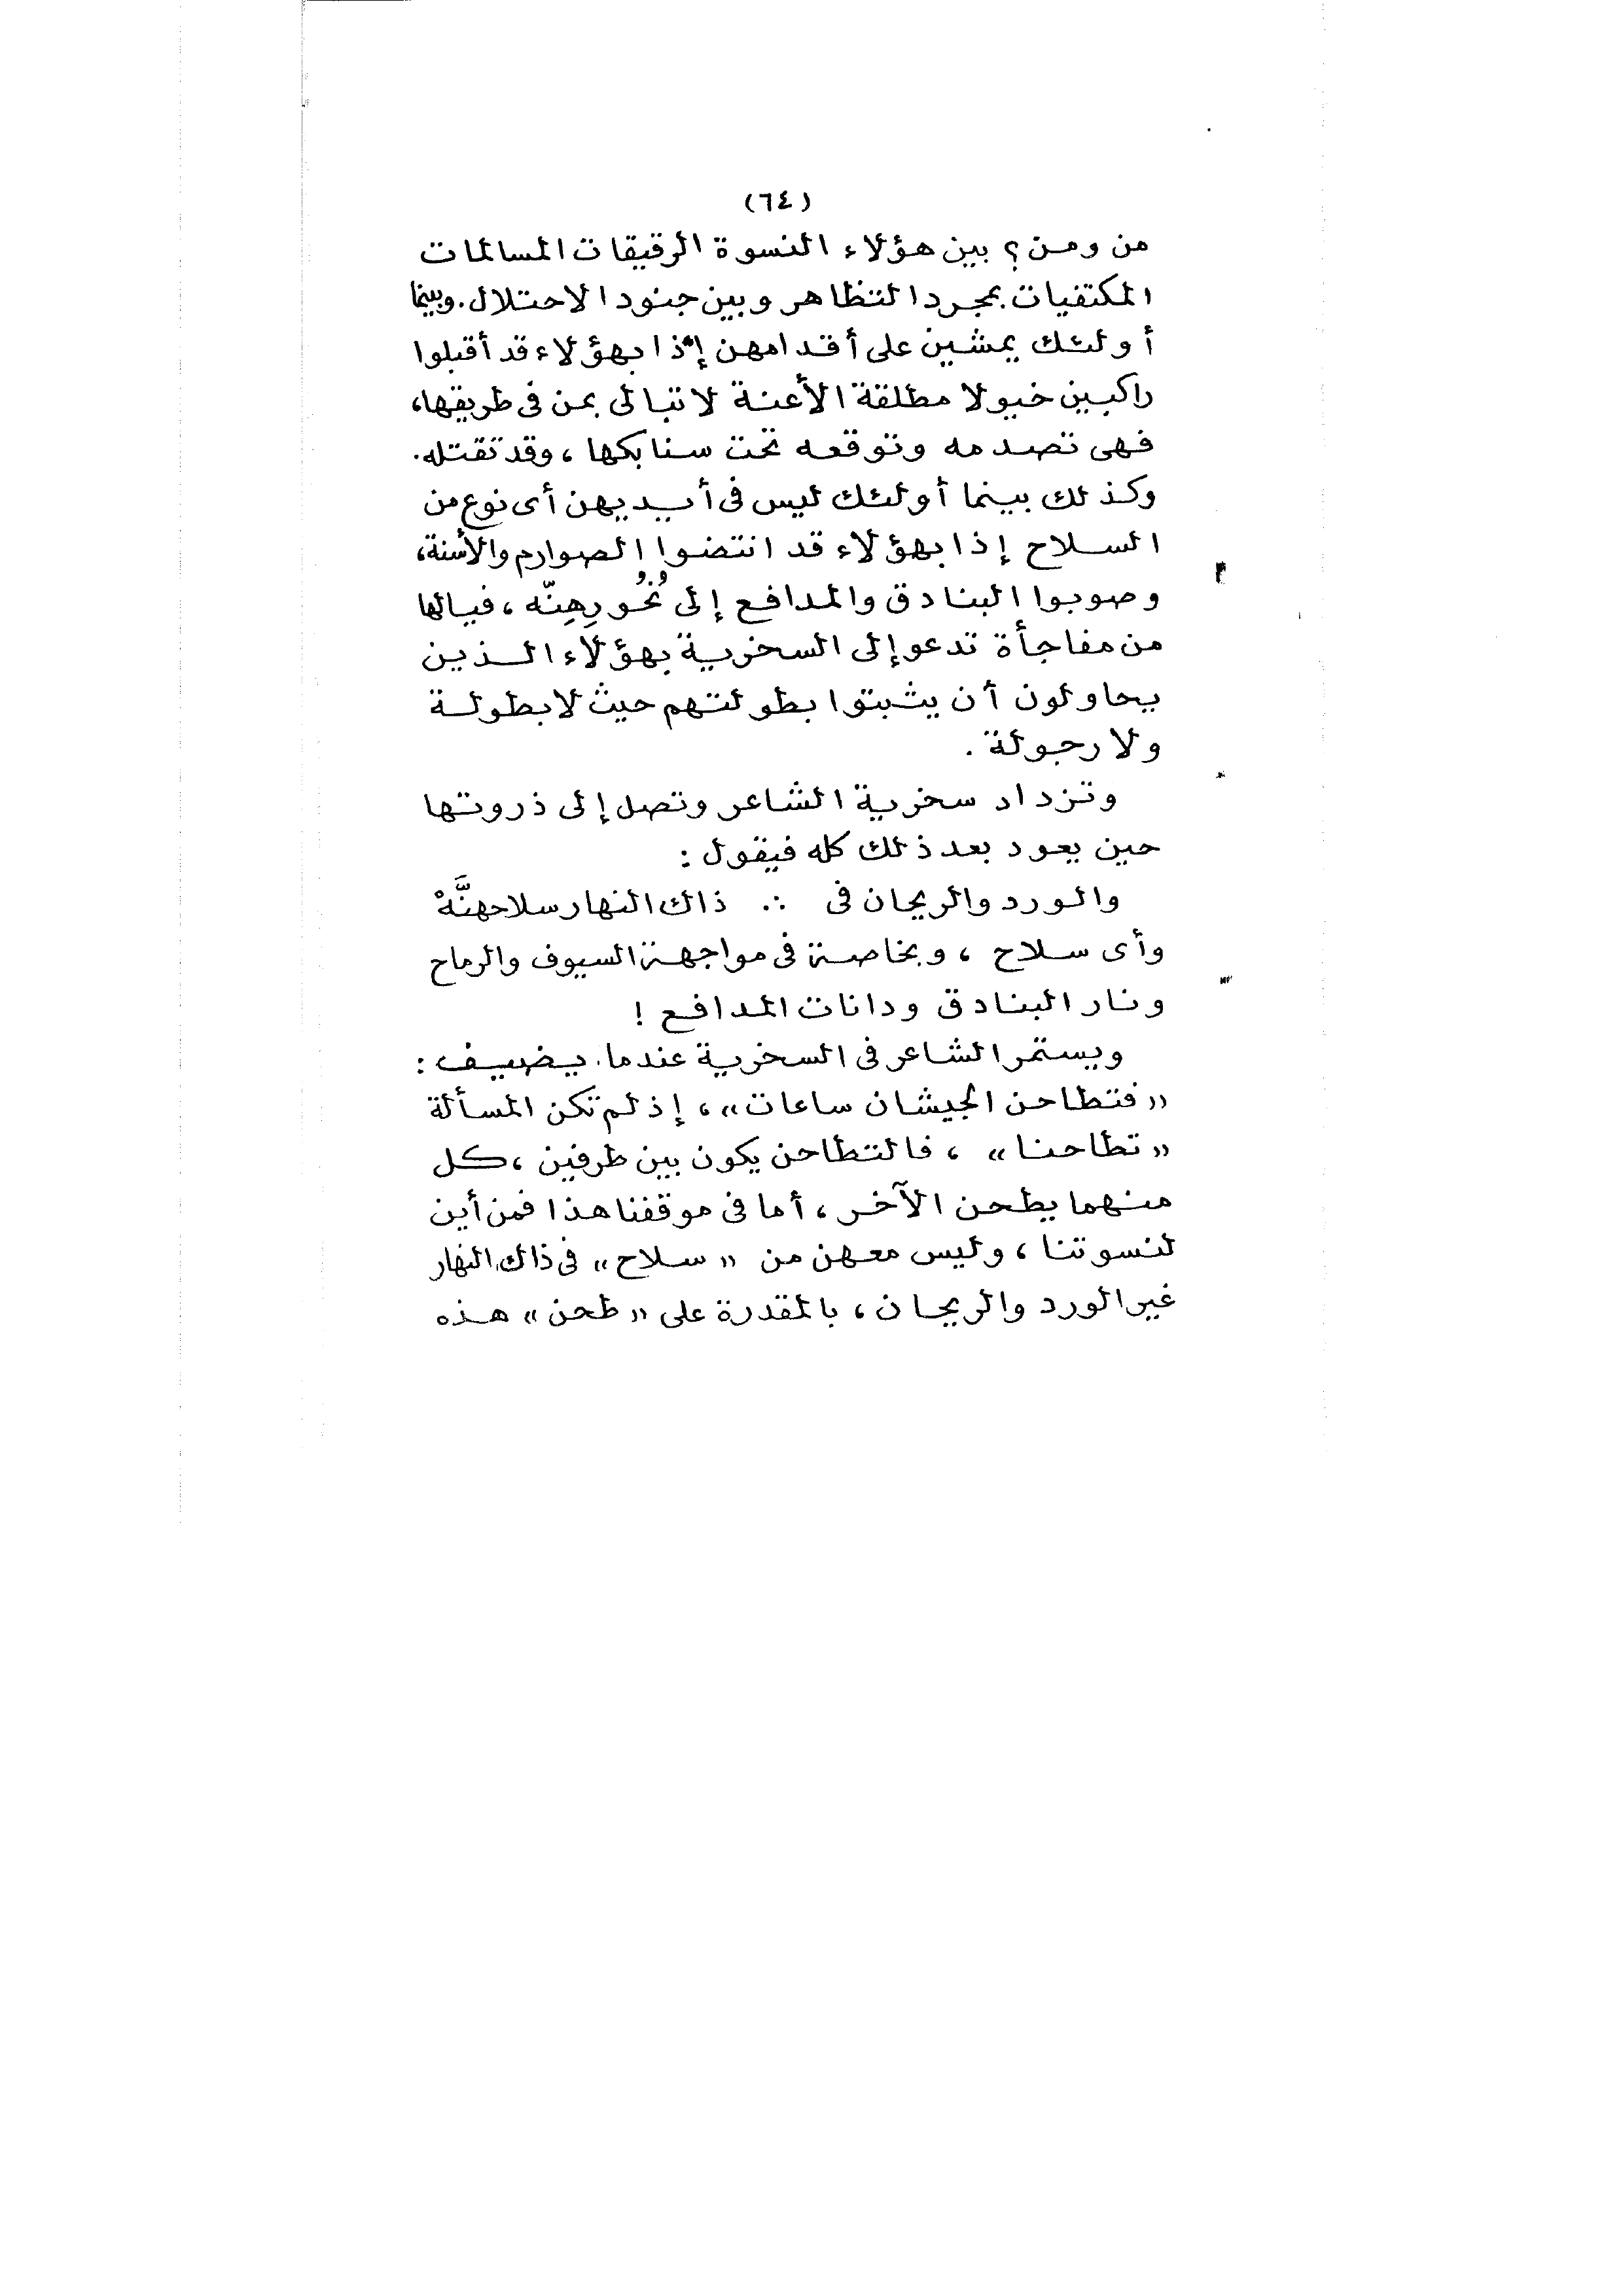 (٦٤)
من ومن؟ بين هؤلاء النسوة الرقيقات المسالمات
المكتفيات بمجرد التظاهر وبين جنود الاحتلال. وبينما
أولئك يمشين على أقدامهن إذا بهؤلاء قد أقبلوا
راكبين خيولا مطلقة الأعنة لا تبالى بمن فى طريقها،
فهى تصدمه وتوقعه تحت سنابكها، وقد تقتله.
وكذلك بينما أولئك ليس فى أيديهن أى نوع من
السلاح إذا بهؤلاء قد انتضوا الصوارم والأسنة،
وصوبوا البنادق والمدافع إلى نُحُورِهِنّه، فيالها
من مفاجأة تدعو إلى السخرية بهؤلاء الذين
يحاولون أن يثبتوا بطولتهم حيث لا بطولة
ولا رجولة.
وتزداد سخرية الشاعر وتصل إلى ذروتها
حين يعود بعد ذلك كله فيقول:
والورد والريحان فى ∴ ذاك النهار سلاحهنَّهْ
وأى سلاح، وبخاصة فى مواجهة السيوف والرماح
ونار البنادق ودانات المدافع!
ويستمر الشاعر فى السخرية عندما يضيف:
«فتطاحن الجيشان ساعات»، إذ لم تكن المسألة
«تطاحنا»، فالتطاحن يكون بين طرفين، كل
منهما يطحن الآخر، أما فى موقفنا هذا فمن أين
لنسوتنا، وليس معهن من «سلاح» فى ذاك النهار
غير الورد والريحان، بالمقدرة على «طحن» هذه